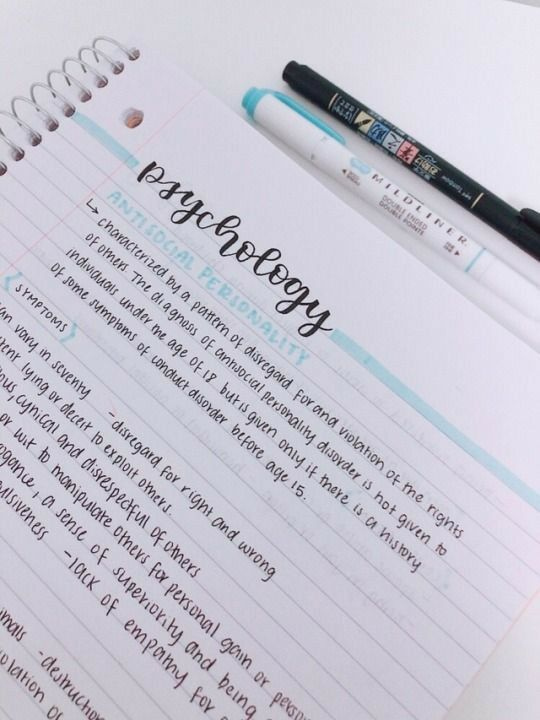 psychology
ANTISOCIAL PERSONALITY
↳ characterized by a pattern of disregard for and violation of the rights
of others The diagnosis of antisocial personality disorder is not given to
individuals under the age of 18 but is given only if there is a history
of some symptoms of conduct disorder before age 15.
SYMPTOMS
vary in severity - disregard for right and wrong
lying or deceit to exploit others.
cynical and disrespectful of others
or wit to manipulate others for personal gain or
a sense of superiority and being
- lack of empathy for
MILDLINER
DOUBLE ENDED
DOUBLE POINTS
Tombow